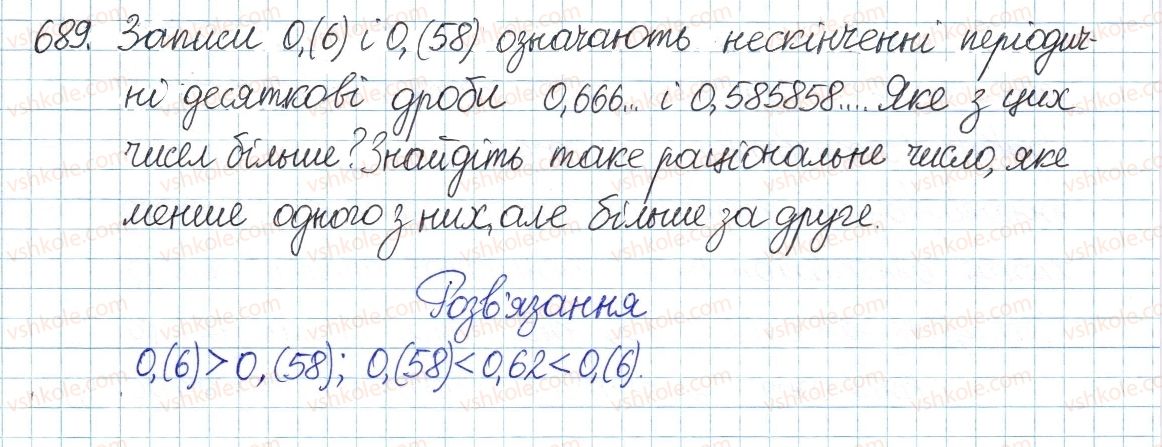 689. Записи 0,(6) і 0,(58) означають нескінченні періодич-
ні десяткові дроби 0,666.. і 0,585858.... Яке з цих
чисел більше? Знайдіть таке раціональне число, яке
менше одного з них, але більше за друге.
Розв'язання
0,(6)>0,(58); 0,(58)<0,62<0,(6).